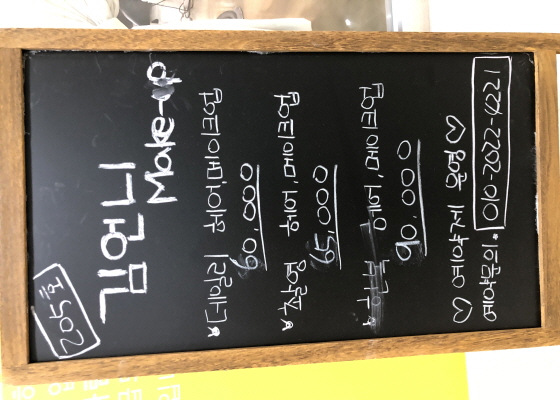 205호
김언니
Make-up
*데일리 헤어,메이크업
60,000
*촬영 헤어,메이크업
65,000
헤어,메이크업
90,000
♡ 예약제 운영 ♡
예약문의. 010-2022-4221